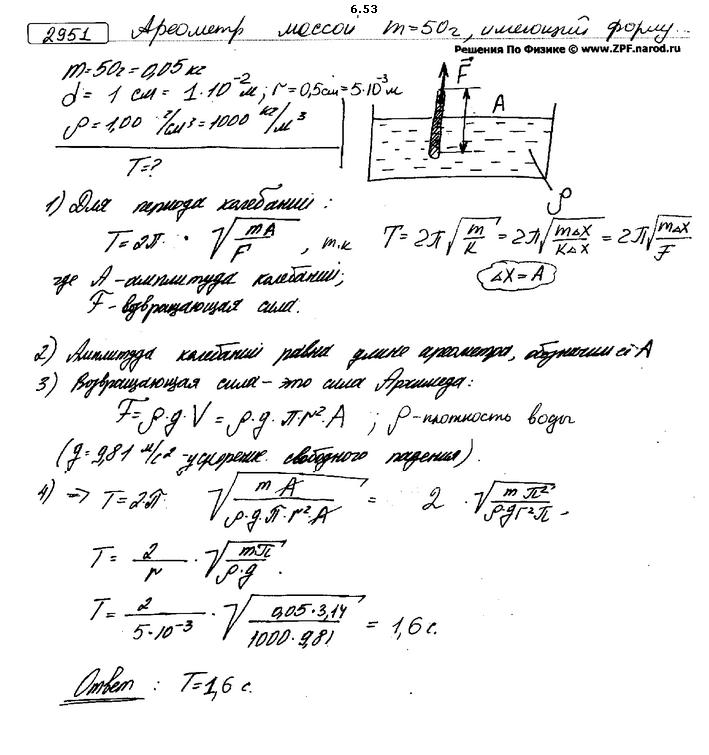 6.53
2951 Ареометр массой m=50г, имеющий форму...
Решения По Физике © www.ZPF.narod.ru
m=50г=0,05 кг
d= 1 см = 1·10⁻² м; r=0,5см=5·10⁻³ м
ρ=1,00 г/см³=1000 кг/м³
T=?
F⃗
A
ρ
1) Для периода колебаний:
T=2π · √(mA/F) , т.к T=2π√(m/K)=2π√(mΔX/KΔX)=2π√(mΔX/F)
где A -амплитуда колебаний; ΔX=A
F- возвращающая сила.
2) Амплитуда колебаний равна длине ареометра, обозначим её A
3) Возвращающая сила- это сила Архимеда:
F=ρ·g·V=ρ·g·π·r²·A ; ρ-плотность воды
(g=9,81 м/с² -ускорение свободного падения).
4) => T=2π √(mA/ρ·g·π·r²·A) = 2 · √(mπ²/ρ·gr²π) .
T= 2/r · √(mπ/ρ·g) .
T= 2/5·10⁻³ · √(0,05·3,14/1000·9,81) = 1,6 с.
Ответ : T=1,6 с.